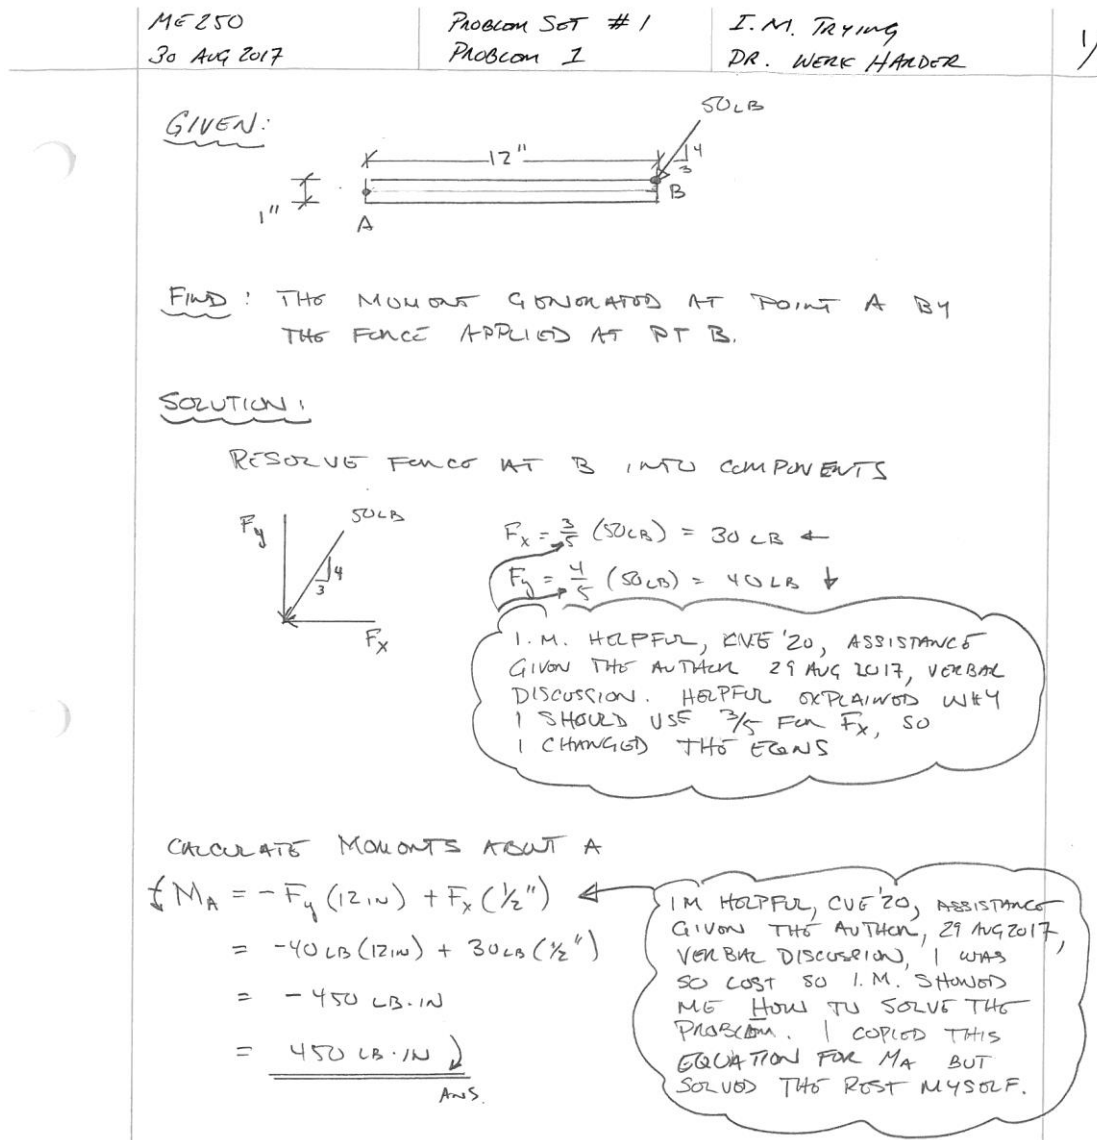 ME 250
30 AUG 2017
PROBLEM SET # 1
PROBLEM 1
I.M. TRYING
DR. WERK HARDER
1/
GIVEN:
50 LB
12"
4
3
B
1"
A
FIND: THE MOMENT GENERATED AT POINT A BY
THE FORCE APPLIED AT PT B.
SOLUTION:
RESOLVE FORCE AT B INTO COMPONENTS
Fy
50 LB
4
3
Fx
Fx = 3/5 (50 LB) = 30 LB ←
Fy = 4/5 (50 LB) = 40 LB ↓
I.M. HELPFUL, CVE '20, ASSISTANCE
GIVEN THE AUTHOR 29 AUG 2017, VERBAL
DISCUSSION. HELPFUL EXPLAINED WHY
I SHOULD USE 3/5 FOR Fx, SO
I CHANGED THE EQNS
CALCULATE MOMENTS ABOUT A
MA = -Fy (12 IN) + Fx (1/2")
= -40 LB (12 IN) + 30 LB (1/2")
= -450 LB·IN
= 450 LB·IN
ANS.
I M HELPFUL, CVE '20, ASSISTANCE
GIVEN THE AUTHOR, 29 AUG 2017,
VERBAL DISCUSSION, I WAS
SO LOST SO I.M. SHOWED
ME HOW TO SOLVE THE
PROBLEM. I COPIED THIS
EQUATION FOR MA BUT
SOLVED THE REST MYSELF.